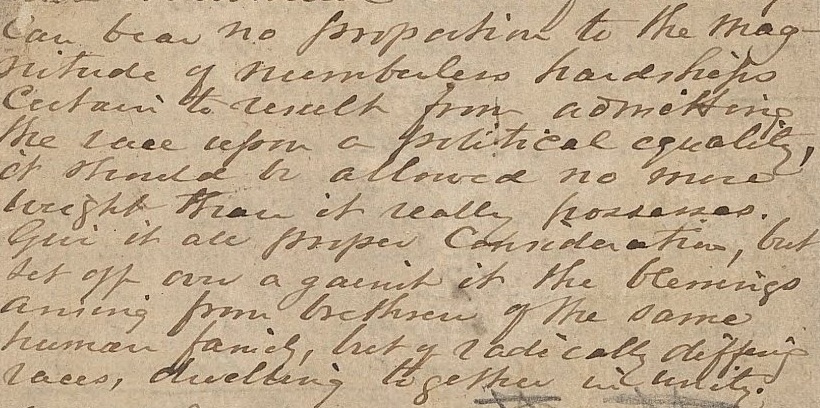 Can bear no proportion to the mag-
nitude of numberless hardships
Certain to result from admitting
the race upon a political equality,
it should be allowed no more
weight than it really possesses.
Give it all proper Consideration, but
set off over against it the blessings
arising from brethren of the same
human family, but of radically differing
races, dwelling together in unity.